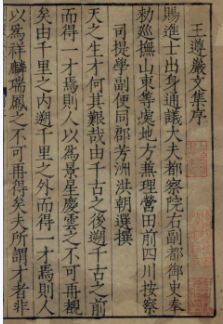 王遵巖文集序
賜進士出身通議大夫都察院右副都御史奉
勑巡撫山東等處地方兼理營田前四川按察
司提學副使同郡芳洲洪朝選撰
天之生才何其艱哉由千古之後遡千古之前
而得一才焉則人以為景星慶雲之不可再覩
矣由千里之內遡千里之外而得一才焉則人
以為祥麟瑞鳳之不可再得矣夫所謂才者非